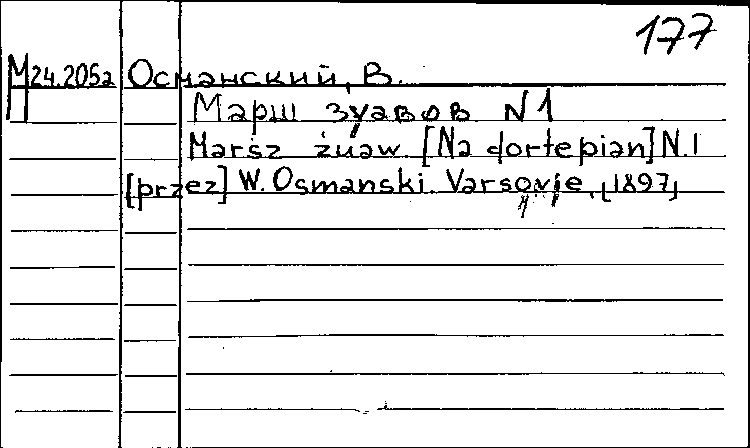 177
М 24.205а Османский, В.
Марш зуавов N 1
Marsz żuaw. [Na fortepian] N. 1
[przez] W. Osmanski. Varsovie, [1897]